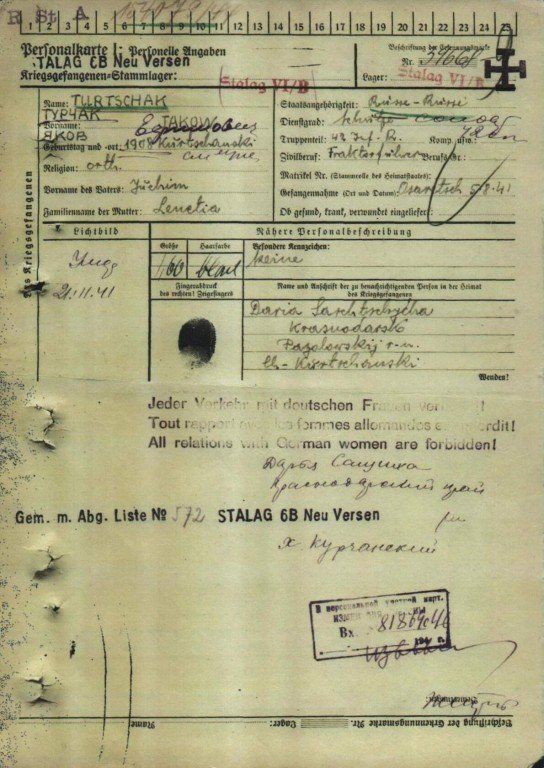 R St A
1 2 3 4 5 6 7 8 9 10 11 12 13 14 15 16 17 18 19 20 21 22 23 24 25
Personalkarte I: Personelle Angaben
STALAG 6B Neu Versen
Kriegsgefangenen-Stammlager:
Stalag VI/B
Beschriftung der Erkennungsmarke
Nr.
Lager: Stalag VI/B
Des Kriegsgefangenen
Name: TURTSCHAK
ТУРЧАК
Vorname: JAKOW
ЯКОВ
Geburtstag und -ort: 1908 Kurtschanski
Religion: orth.
Vorname des Vaters: Juchim
Familienname der Mutter:
Staatsangehörigkeit: Russe-
Dienstgrad: Schütze
Truppenteil: 42 Inf. R. Komp. usw.:
Zivilberuf: Traktorführer Berufs-Gr.:
Matrikel Nr. (Stammrolle des Heimatstaates):
Gefangennahme (Ort und Datum): 5/8.41
Ob gesund, krank, verwundet eingeliefert:
Lichtbild
21.11.41
Nähere Personalbeschreibung
Größe
Haarfarbe
Besondere Kennzeichen:
160
keine
Fingerabdruck
des rechten! Zeigefingers
Name und Anschrift der zu benachrichtigenden Person in der Heimat
des Kriegsgefangenen
Daria
Krasnodarsk
Kurtschanski
Wenden!
Jeder Verkehr mit deutschen Frauen verboten!
Tout rapport avec les femmes allemandes est interdit!
All relations with German women are forbidden!
Дарья
Краснодарский край
Gem. m. Abg. Liste № 572 STALAG 6B Neu Versen
х. Курчанский
В персональной учетной карт.
Вх.
194 г.
Bemerkungen:
Beschriftung der Erkennungsmarke Nr.
Lager:
Name